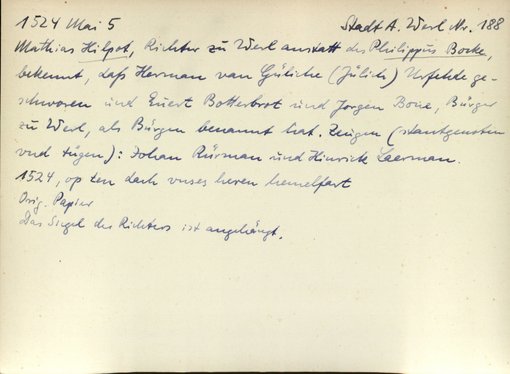 1524 Mai 5 Stadt A. Werl Nr. 188
Mathias Hilpot, Richter zu Werl anstatt des Philippus Borke,
bekennt, daß Herman van Güliche (Jülich) Urfehde ge-
schworen und Evert Botterbrot und Jorgen Bone, Bürger
zu Werl, als Bürgen benannt hat. Zeugen (stantgenoten
und tügen): Johan Rürman und Hinrick Laerman.
1524, op den dach unses heren hemelfart
Orig. Papier
Das Siegel des Richters ist angehängt.